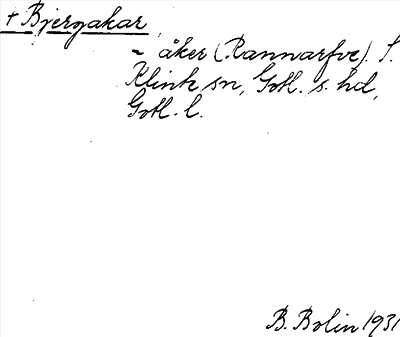 + Bjergakar,
~ åker (Rannarfve). S.
Klinte sn, Gotl. s. hd,
Gotl. l.
B. Bolin 1931